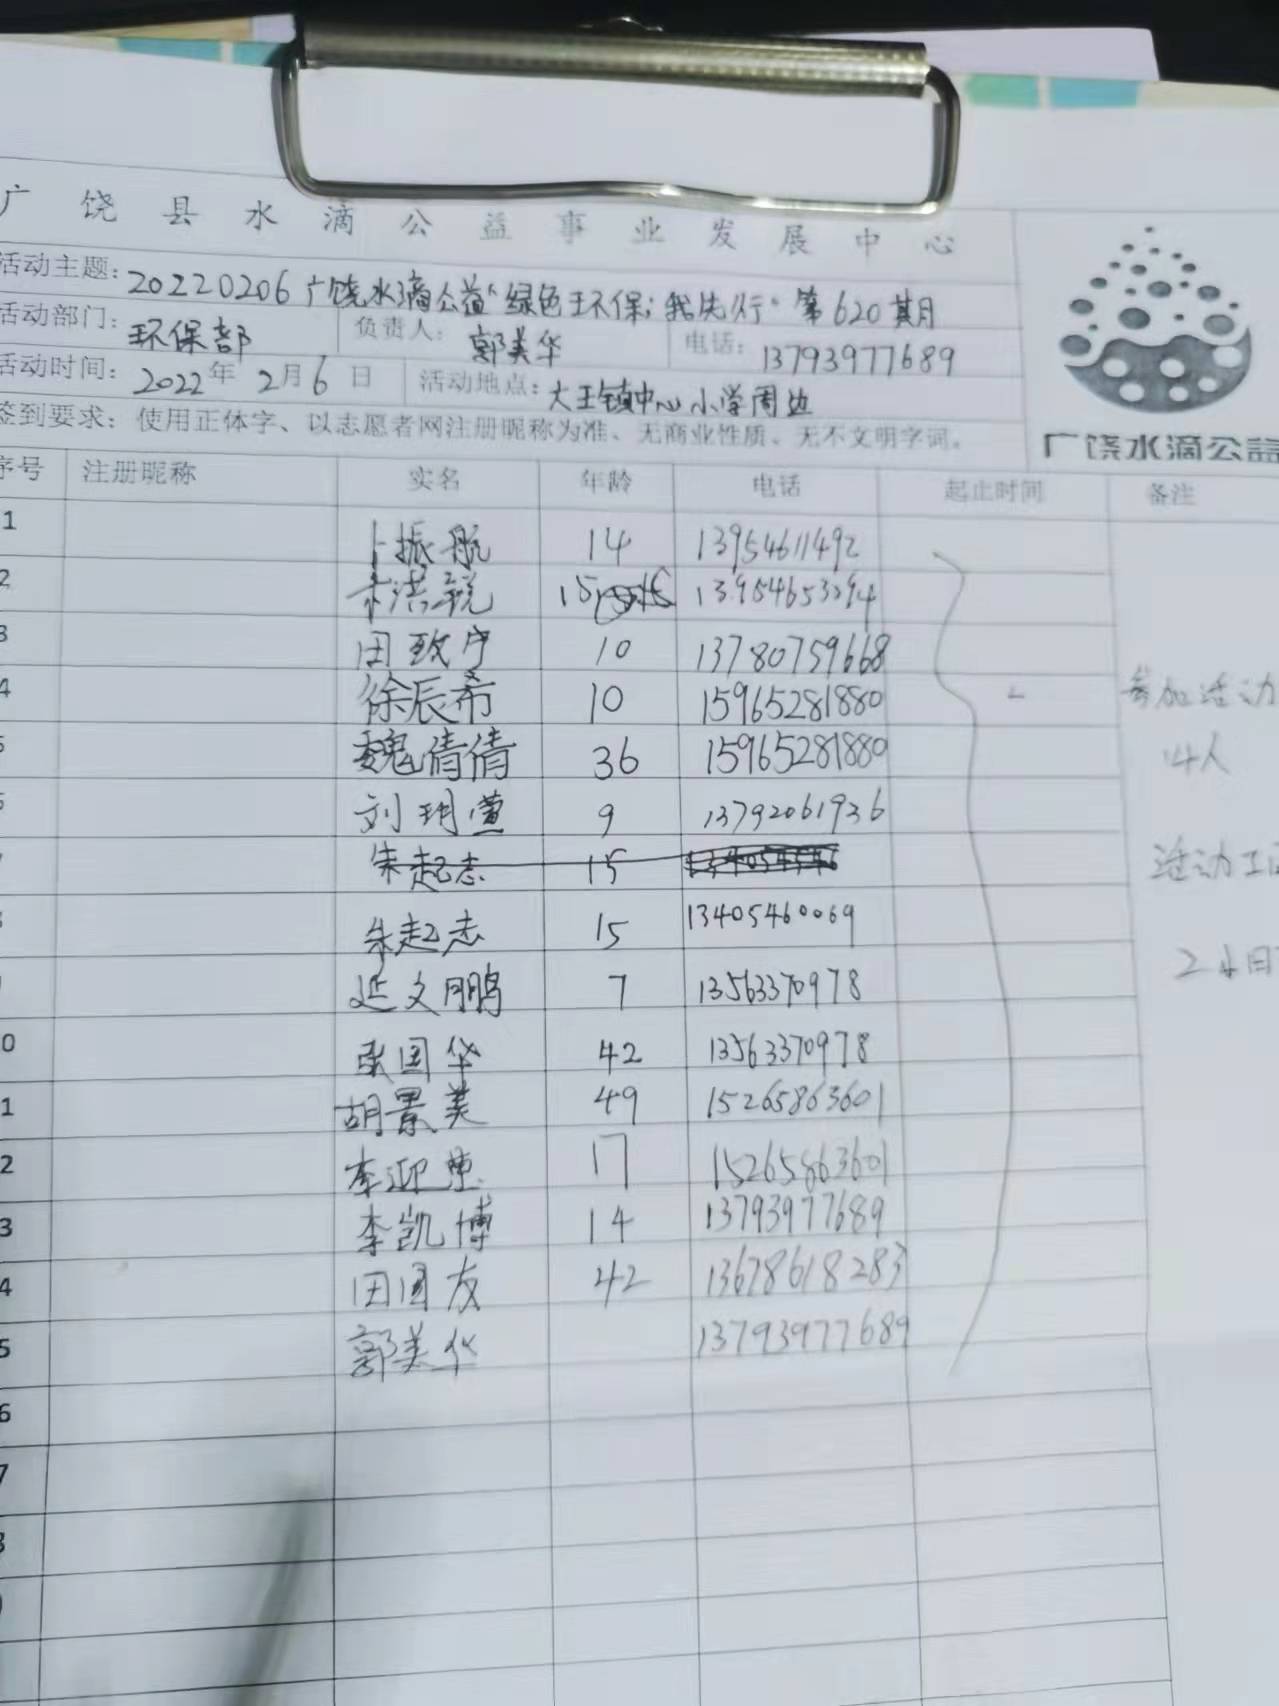 广饶县水滴公益事业发展中心
活动主题：20220206广饶水滴公益“绿色环保，我先行”第620期
活动部门：环保部 负责人：郭美华 电话：13793977689
活动时间：2022年2月6日 活动地点：大王镇中心小学周边
签到要求：使用正体字、以志愿者网注册昵称为准、无商业性质、无不文明字词。
广饶水滴公益
序号 注册昵称 实名 年龄 电话 起止时间 备注
1 卜振航 14 13954611492
2 浩锐 15
3 田致宁 10 13780759668
4 徐辰希 10 15965281880 参加活动
5 魏倩倩 36 15965281880 14人
6 刘玥萱 9 13792061936
7 朱起志 15 活动工
8 朱起志 15 13405460069
9 延文鹏 7 13563370978
0 张国华 42 13563370978
1 胡景美 49 15265863601
2 李迎 17 15265863601
3 李凯博 14 13793977689
4 田国友 42 13678618283
5 郭美华 13793977689
6
7
8